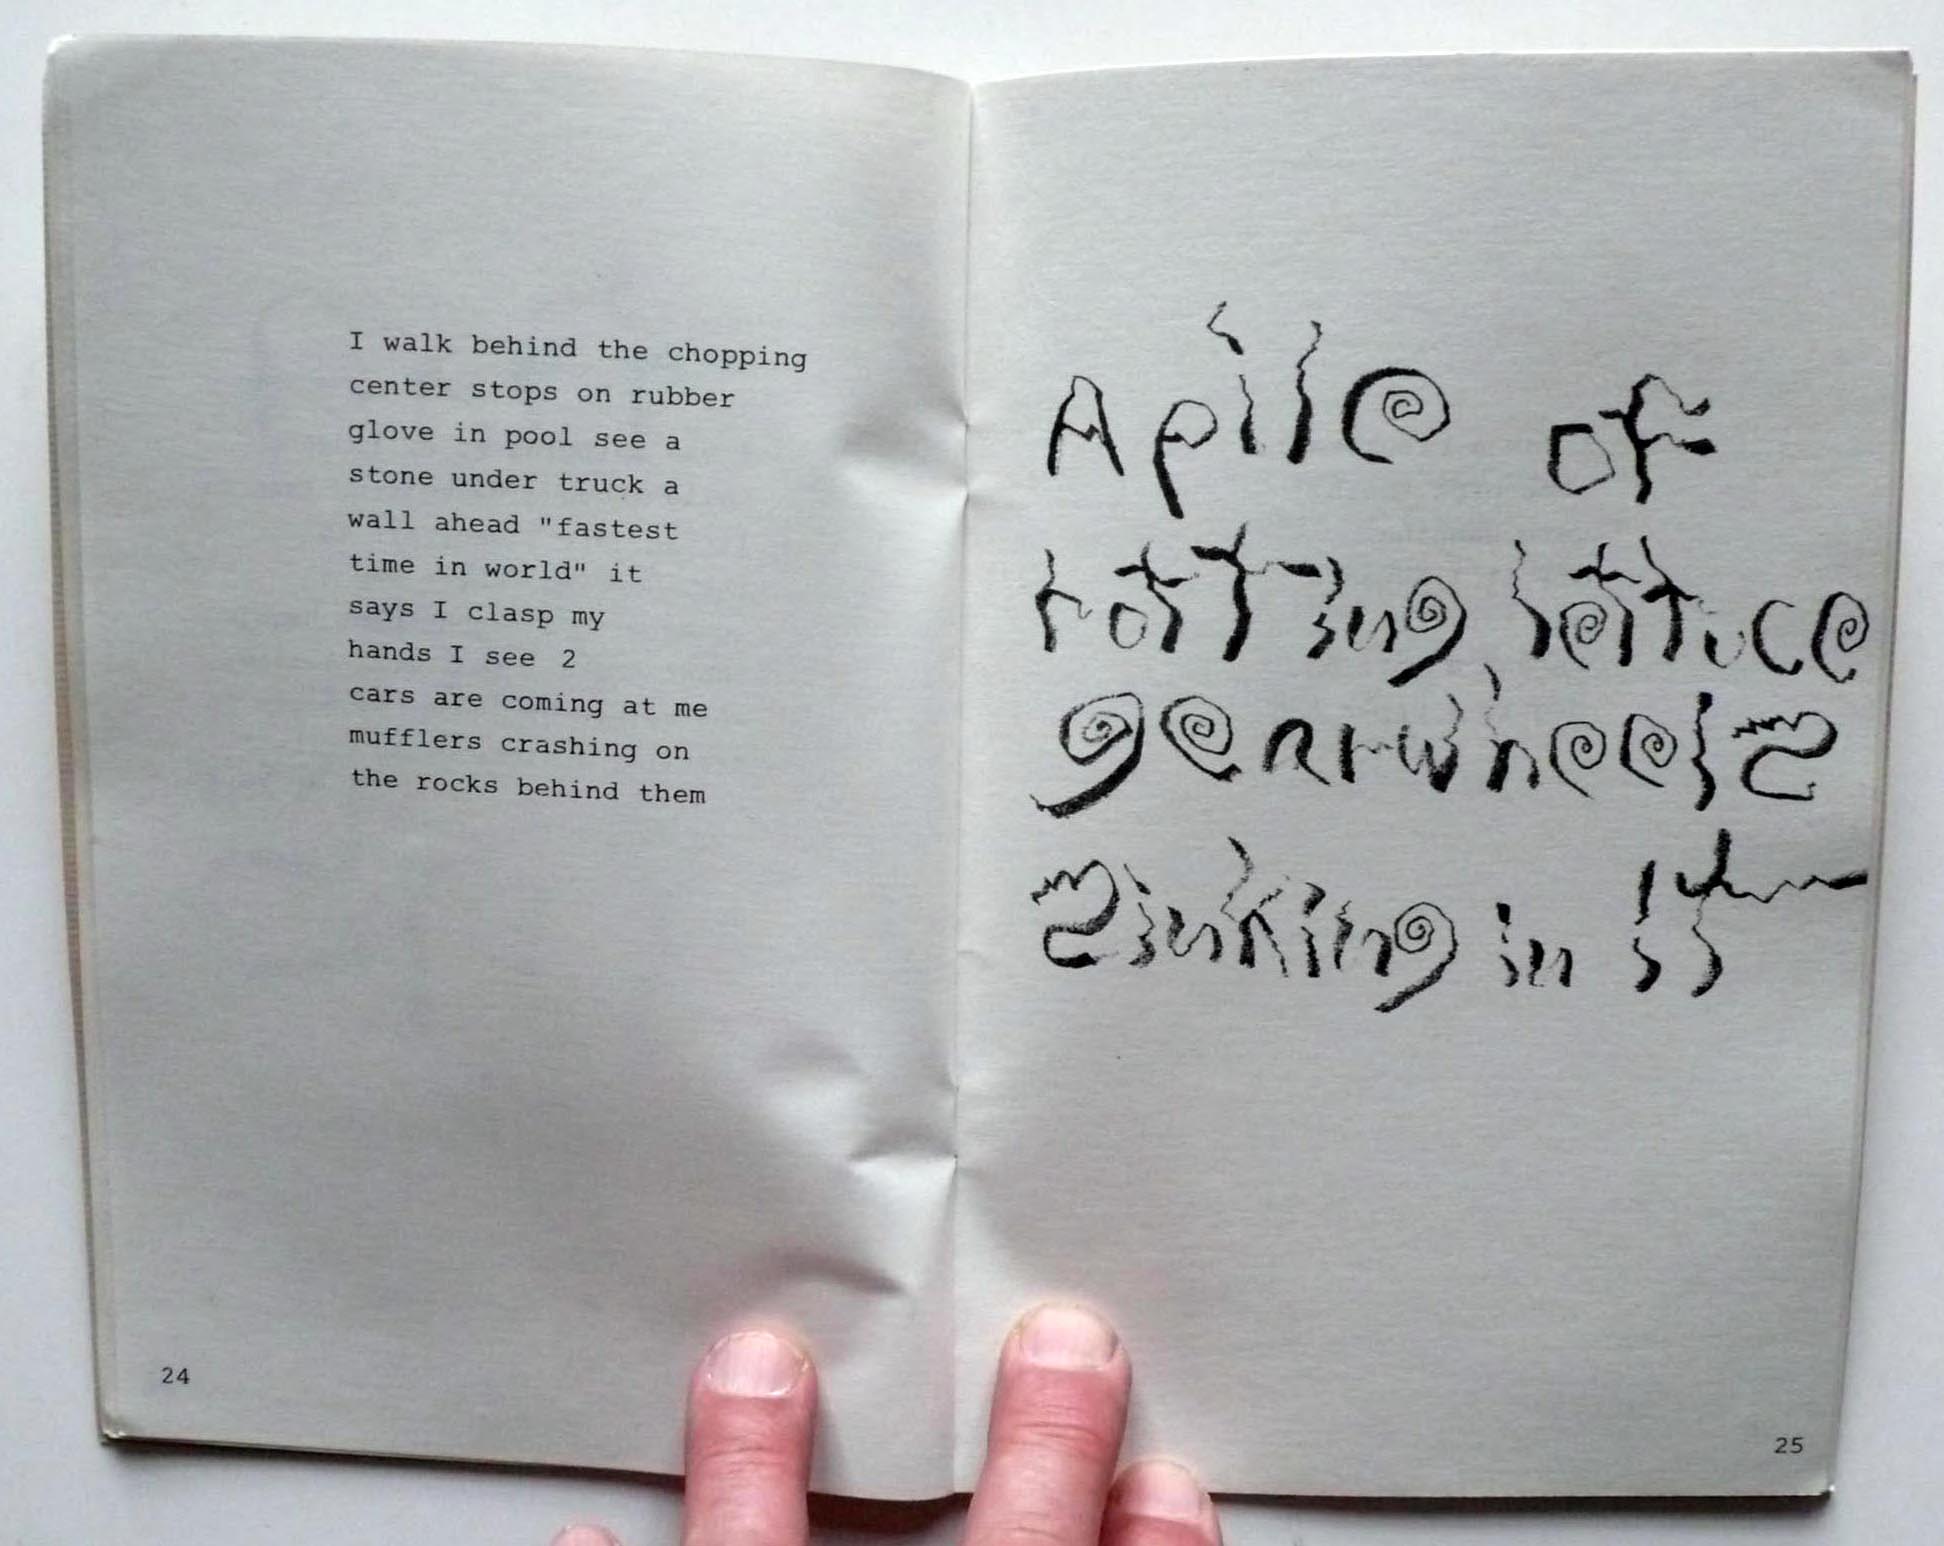 I walk behind the chopping
center stops on rubber
glove in pool see a
stone under truck a
wall ahead "fastest
time in world" it
says I clasp my
hands I see 2
cars are coming at me
mufflers crashing on
the rocks behind them
24
A pile of
rotting lettuce
gearwheels
sinking in it
25